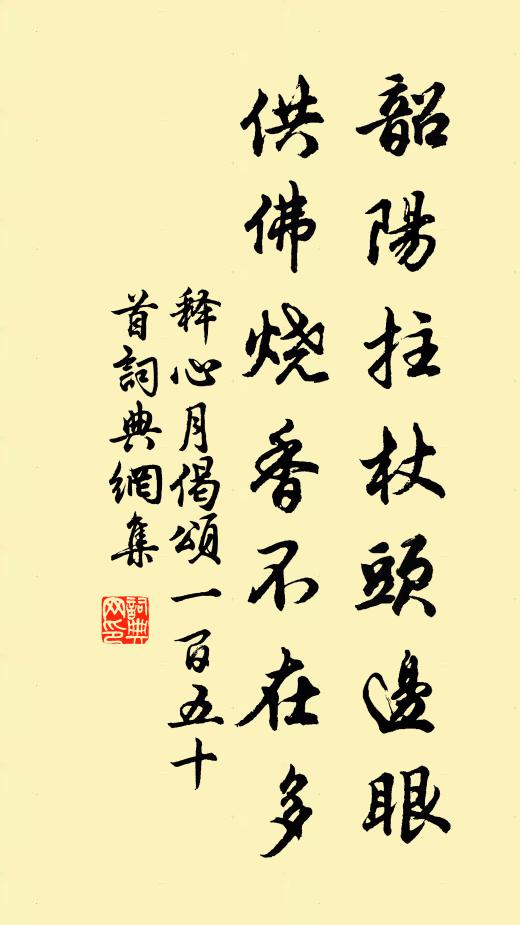 韶陽拄杖頭邊眼
供佛烧香不在多
释心月偈頌一百五十
首詞典網集
詞典网印